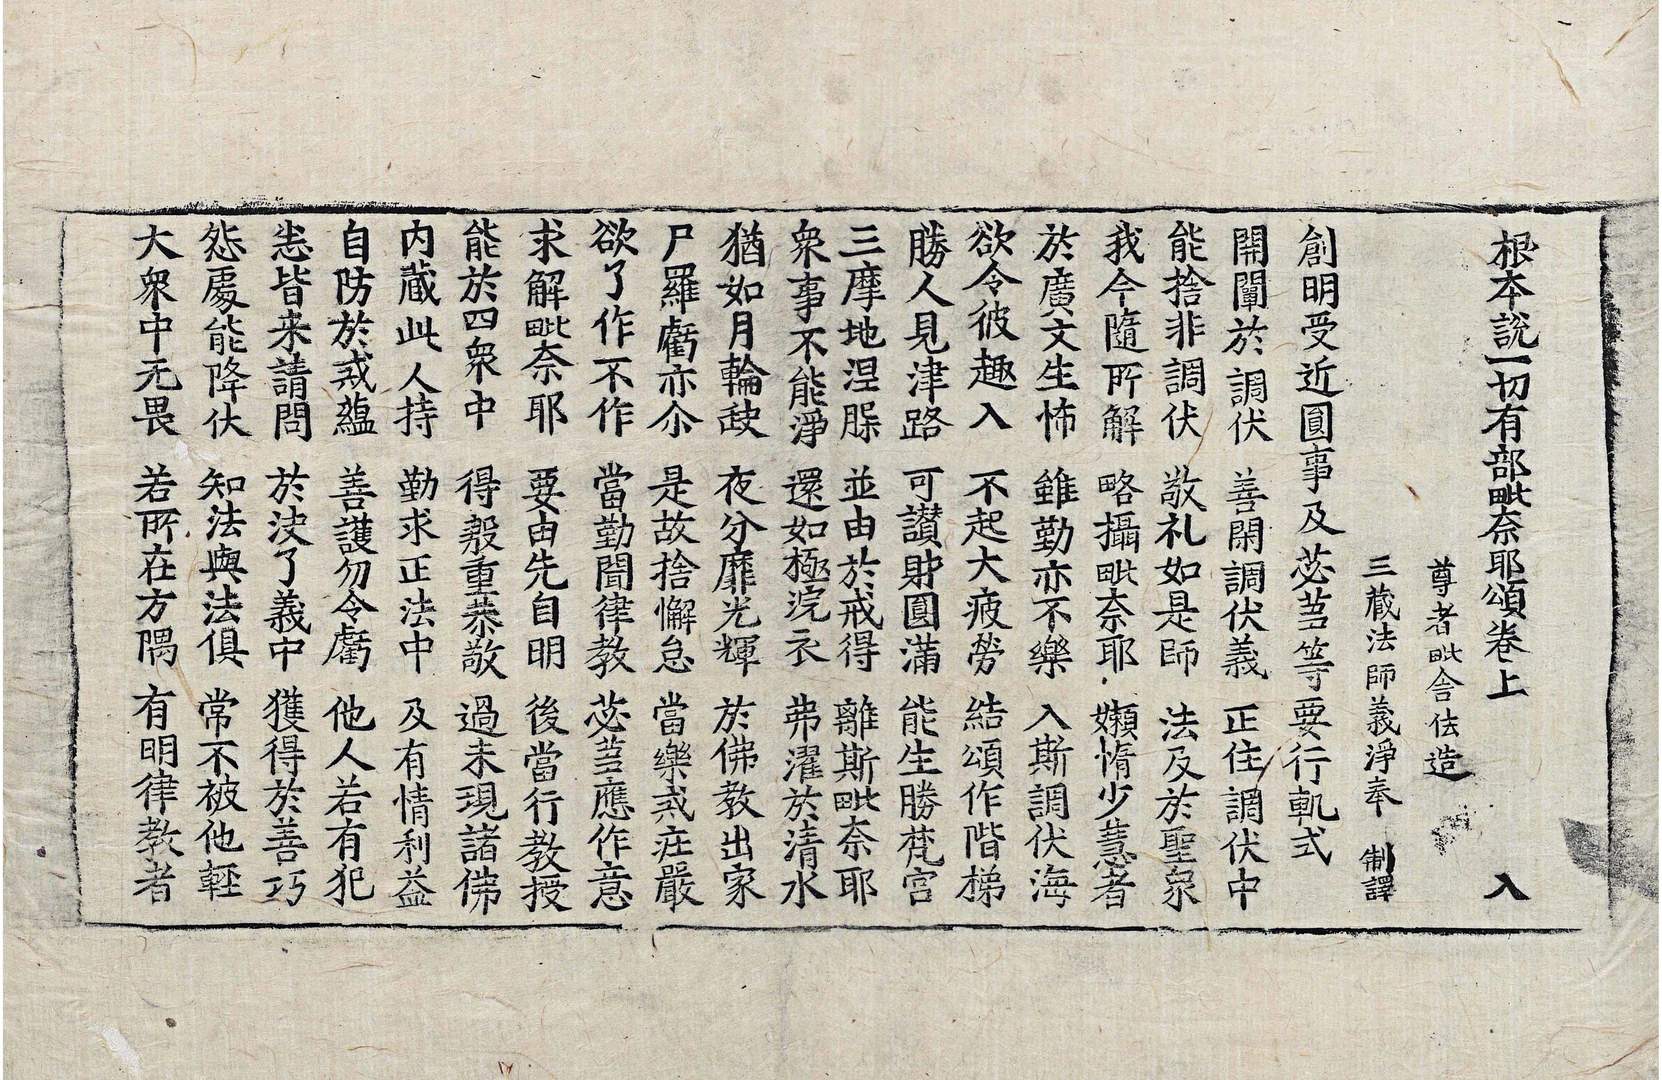 根本說一切有部毗奈耶頌卷上　入
尊者毗舍佉造
三藏法師義淨奉　制譯
創明受近圓事及苾芻等要行軌式
開闡於調伏　善閑調伏義　正住調伏中
能捨非調伏　敬礼如是師　法及於聖衆
我今隨所解　略攝毗奈耶　嬾惰少慧者
於廣文生怖　雖勤亦不樂　入斯調伏海
欲令彼趣入　不起大疲勞　結頌作階梯
勝人見津路　可讃財圓滿　能生勝梵宮
三摩地涅槃　並由於戒得　離斯毗奈耶
衆事不能淨　還如極浣衣　弗濯於清水
猶如月輪缺　夜分靡光輝　於佛教出家
尸羅虧亦尒　是故捨懈怠　當樂戒莊嚴
欲了作不作　當勤聞律教　苾芻應作意
求解毗奈耶　要由先自明　後當行教授
能於四衆中　得慇重恭敬　過未現諸佛
內藏此人持　勤求正法中　及有情利益
自防於戒蘊　善護勿令虧　他人若有犯
悉皆来請問　於決了義中　獲得於善巧
怨處能降伏　知法與法俱　常不被他輕
大衆中无畏　若所在方隅　有明律教者